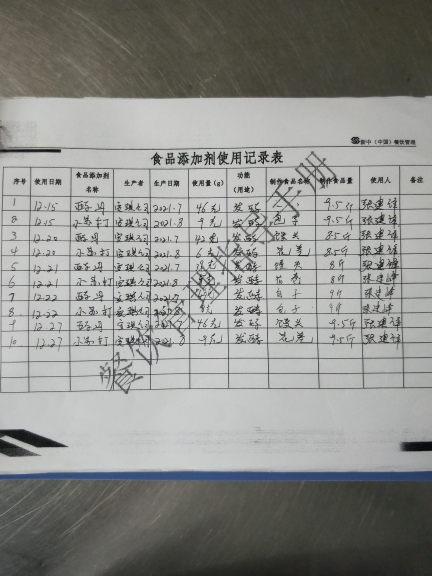 新中（中国）餐饮管理
食品添加剂使用记录表
序号 使用日期 食品添加剂名称 生产者 生产日期 使用量（g） 功能（用途） 制作食品名称 制作食品量 使用人 备注
1 12.15 酵母 安琪公司 2021.7 46克 发酵 9.5斤
2 12.15 小苏打 安琪公司 2021.8 9克 发酵 包子 9.5斤
3 12.20 酵母 安琪公司 2021.7 42克 发酵 馒头 8.5斤
4 12.20 小苏打 安琪公司 2021.8 6克 发酵 花卷 8.5斤
5 12.21 酵母 安琪公司 2021.7 发酵 馒头 8斤
6 12.21 小苏打 安琪公司 2021.8 发酵 花卷 8斤
7 12.22 酵母 安琪公司 2021.7 发酵 包子 9斤
8 12.22 小苏打 安琪公司 发酵 包子 9斤
9 12.27 酵母 安琪公司 46克 发酵 馒头 9.5斤
10 12.27 小苏打 安琪公司 2021.8 9克 发酵 花卷 9.5斤